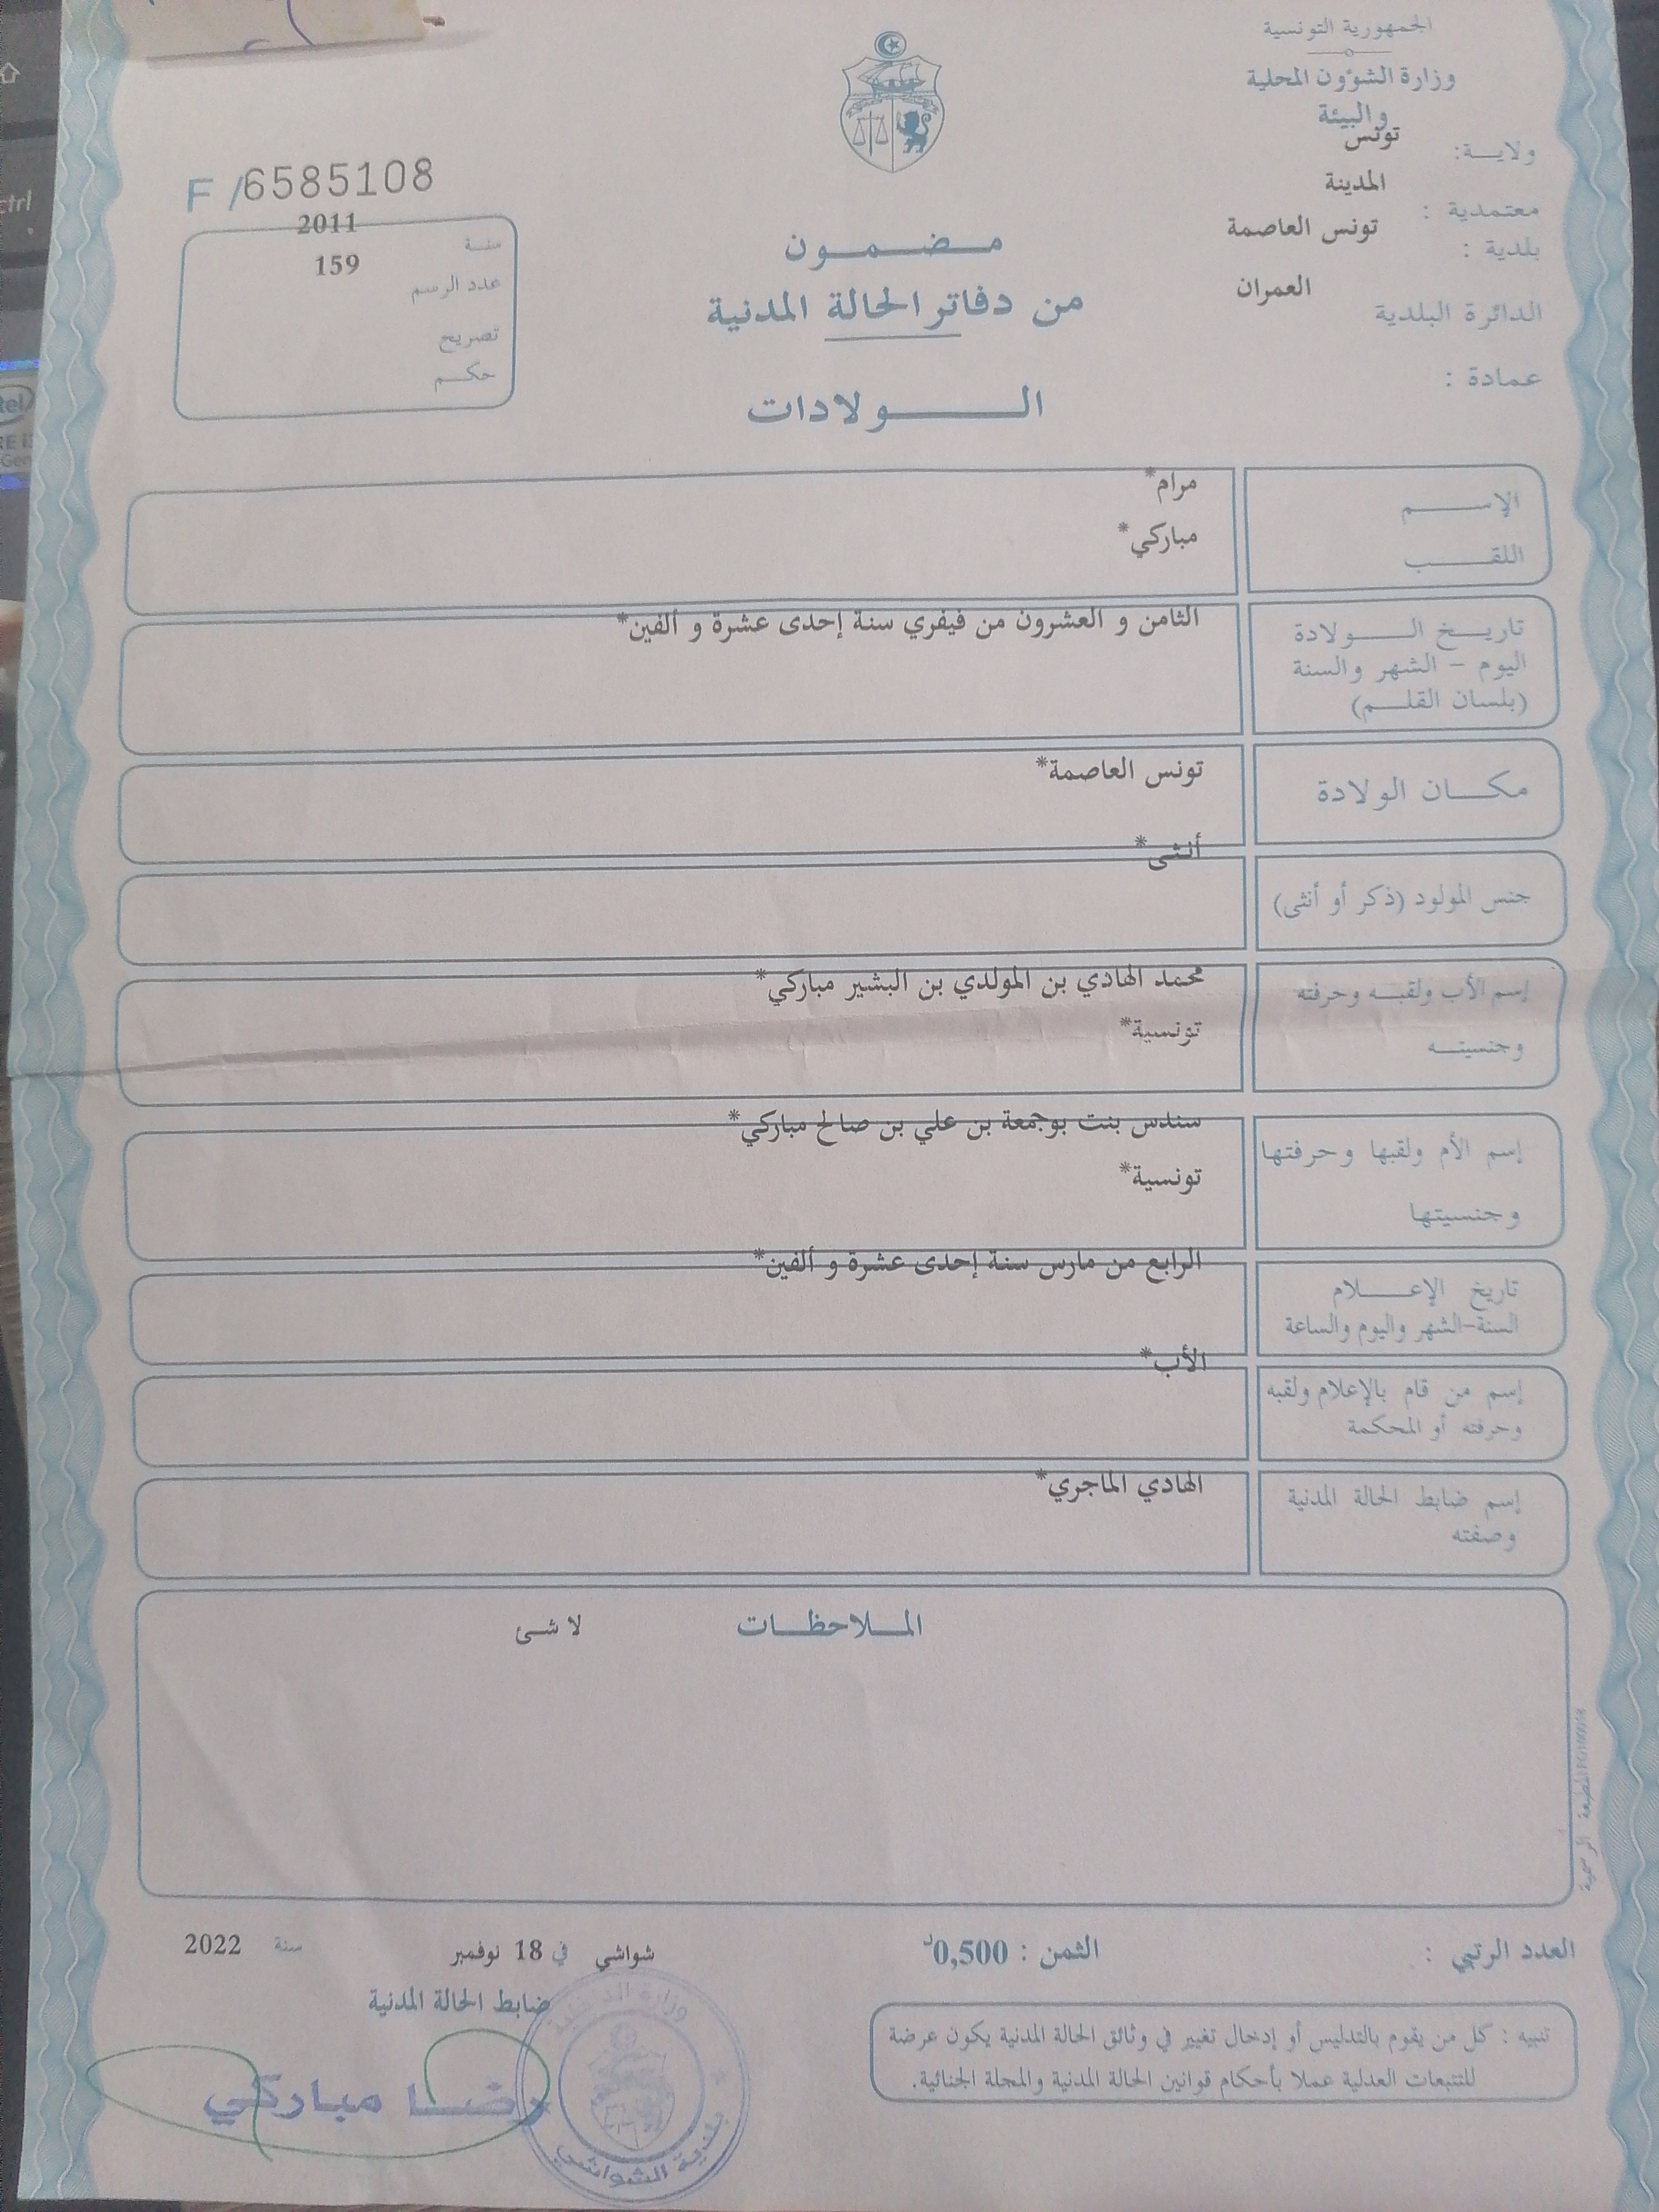 الجمهورية التونسية
وزارة الشؤون المحلية
والبيئة
ولاية: تونس
معتمدية : المدينة
بلدية : تونس العاصمة
الدائرة البلدية العمران
عمادة :
مضمون
من دفاتر الحالة المدنية
الولادات
F /6585108
سنة 2011
عدد الرسم 159
تصريح
حكم
الإسم مرام*
اللقب مباركي*
تاريخ الولادة الثامن و العشرون من فيفري سنة إحدى عشرة و ألفين*
اليوم - الشهر والسنة
(بلسان القلم)
مكان الولادة تونس العاصمة*
جنس المولود (ذكر أو أنثى) أنثى*
إسم الأب ولقبه وحرفته محمد الهادي بن المولدي بن البشير مباركي*
وجنسيته تونسية*
إسم الأم ولقبها وحرفتها سندس بنت بوجمعة بن علي بن صالح مباركي*
وجنسيتها تونسية*
تاريخ الإعلام الرابع من مارس سنة إحدى عشرة و ألفين*
السنة-الشهر واليوم والساعة
إسم من قام بالإعلام ولقبه الأب*
وحرفته أو المحكمة
إسم ضابط الحالة المدنية الهادي الماجري*
وصفته
الملاحظات لا شئ
المطبعة الرسمية
العدد الرتبي : الثمن : 0,500د
شواشي في 18 نوفمبر سنة 2022
ضابط الحالة المدنية
رضا مباركي
وزارة الداخلية
بلدية الشواشي
تنبيه : كل من يقوم بالتدليس أو إدخال تغيير في وثائق الحالة المدنية يكون عرضة
للتتبعات العدلية عملا بأحكام قوانين الحالة المدنية والمجلة الجنائية.
ctrl